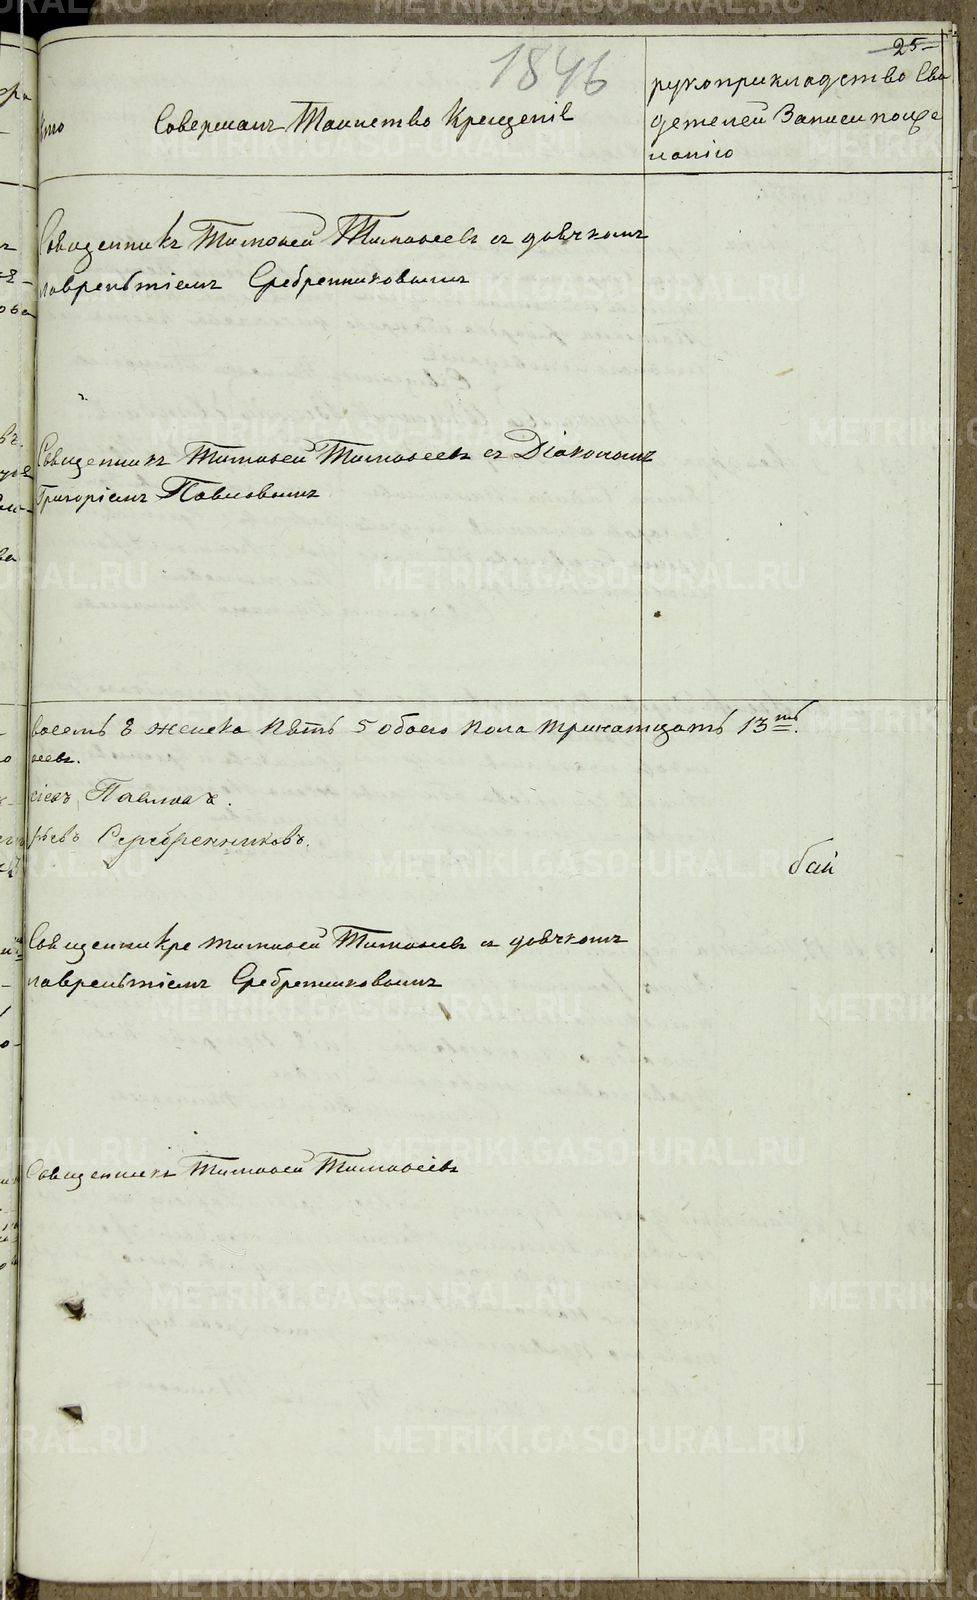 1846
25
Кто Совершалъ Таинство Крещенiе
рукоприкладство Сви
детелей Записи по же
ланiю
Священникъ Тимофей Тимофеевъ съ дьячкомъ
лаврентiемъ Сребренниковымъ
Священникъ Тимофей Тимофеевъ съ Дiакономъ
Григорiемъ Павловымъ
восемь 8 женска пѣть 5 обоего пола тринатцать 13ть.
феевъ.
Павловъ.
Серебренниковъ.
бай
Священникре тимофей Тимофеевъ съ дьячкомъ
лаврентiемъ Сребренниковымъ
Священникъ Тимофей Тимофеевъ
METRIKI.GASO-URAL.RU